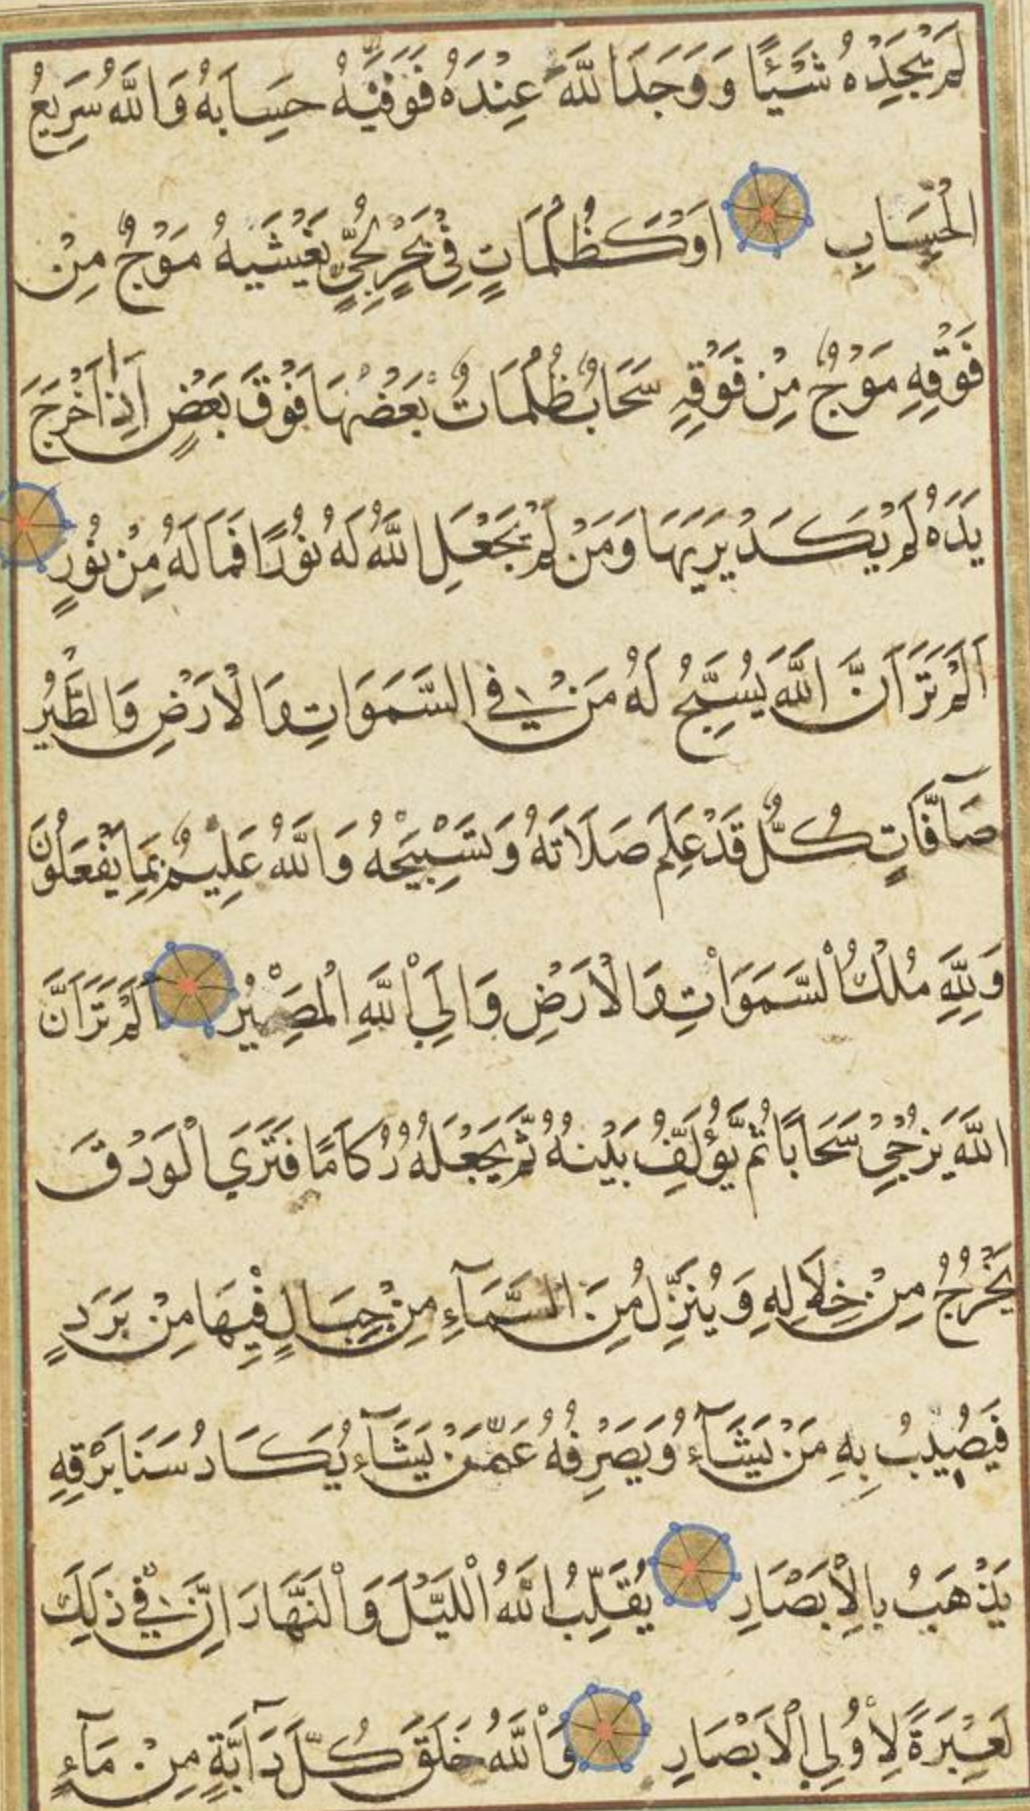 لَمْ يَجِدْهُ شَيْئًا وَوَجَدَ اللَّهَ عِنْدَهُ فَوَفَّيٰهُ حِسَابَهُ وَاللَّهُ سَرِيعُ
الْحِسَابِ اَوْ كَظُلُمَاتٍ فِي بَحْرٍ لُجِّيٍّ يَغْشَيٰهُ مَوْجٌ مِنْ
فَوْقِهِ مَوْجٌ مِنْ فَوْقِهِ سَحَابٌ ظُلُمَاتٌ بَعْضُهَا فَوْقَ بَعْضٍ اِذَا اَخْرَجَ
يَدَهُ لَمْ يَكَدْ يَرَيٰهَا وَمَنْ لَمْ يَجْعَلِ اللَّهُ لَهُ نُورًا فَمَا لَهُ مِنْ نُورٍ
اَلَمْ تَرَ اَنَّ اللَّهَ يُسَبِّحُ لَهُ مَنْ فِي السَّمَوَاتِ وَالْاَرْضِ وَالطَّيْرُ
صَآفَّاتٍ كُلٌّ قَدْ عَلِمَ صَلَاتَهُ وَتَسْبِيحَهُ وَاللَّهُ عَلِيمٌ بِمَا يَفْعَلُونَ
وَلِلَّهِ مُلْكُ السَّمَوَاتِ وَالْاَرْضِ وَاِلَي اللَّهِ الْمَصِيرُ اَلَمْ تَرَ اَنَّ
اللَّهَ يُزْجِي سَحَابًا ثُمَّ يُؤَلِّفُ بَيْنَهُ ثُمَّ يَجْعَلُهُ رُكَامًا فَتَرَي الْوَدْقَ
يَخْرُجُ مِنْ خِلَالِهِ وَيُنَزِّلُ مِنَ السَّمَآءِ مِنْ جِبَالٍ فِيهَا مِنْ بَرَدٍ
فَيُصِيبُ بِهِ مَنْ يَشَآءُ وَيَصْرِفُهُ عَمَّنْ يَشَآءُ يَكَادُ سَنَا بَرْقِهِ
يَذْهَبُ بِالْاَبْصَارِ يُقَلِّبُ اللَّهُ الْلَيْلَ وَالْنَهَّارَ اِنَّ فِي ذَلِكَ
لَعِبْرَةً لِاُولِي الْاَبْصَارِ وَاللَّهُ خَلَقَ كُلَّ دَآبَّةٍ مِنْ مَآءٍ